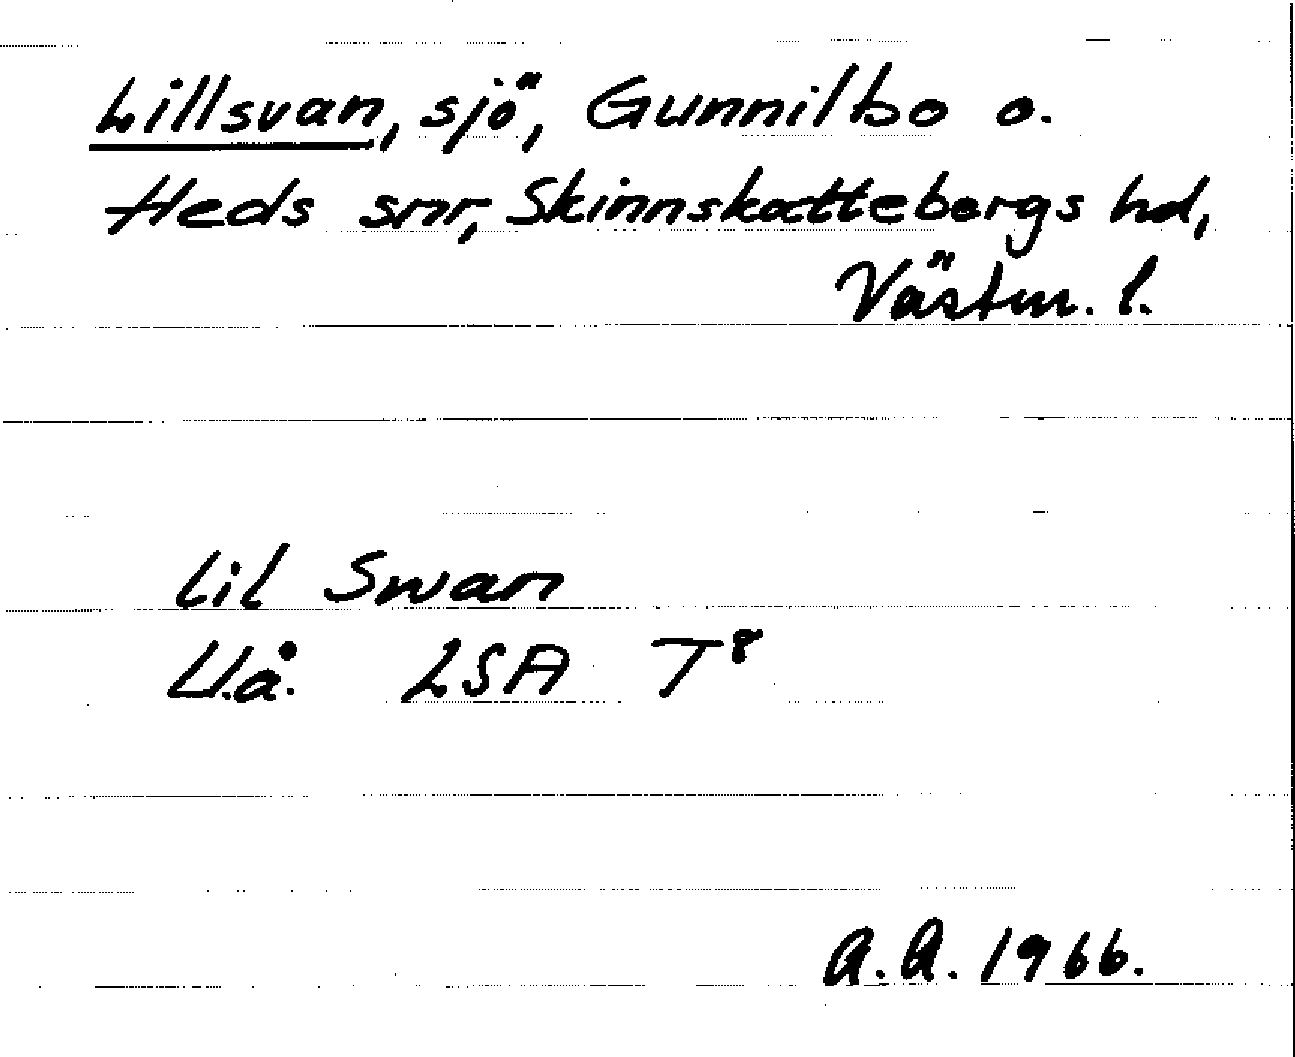 Lillsvan, sjö, Gunnilbo o.
Heds snr, Skinnskattebergs hd,
Västm. l.
Lil Swan
U.å. LSA T⁸
A.A. 1966.